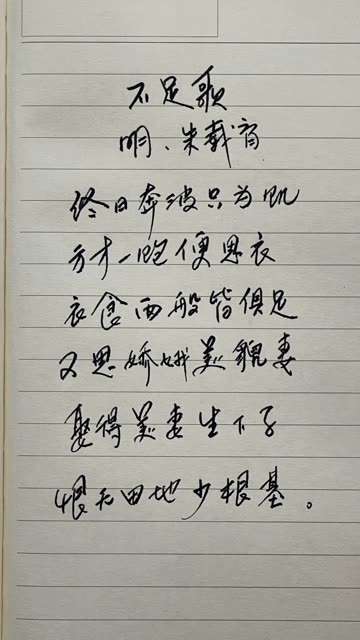 不足歌
明、朱载堉
终日奔波只为饥
方才一饱便思衣
衣食两般皆俱足
又思娇娥美貌妻
娶得美妻生下子
恨无田地少根基。